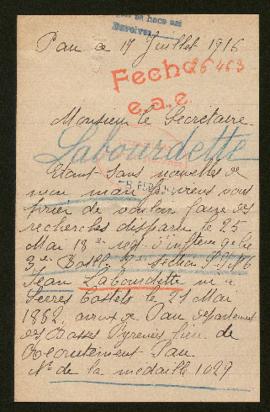 Devolver
Pau le 17 Juillet 1916
Fecho 26463
e.a.e.
Monsieur le Secretaire
Labourdette
Etant sans nouvelles de
mon mari je viens vous
prier de vouloir faire des
recherches disparu le 25
Mai 18e reg. d'infanterie
3e Section
Jean Labourdette né a
Serres Castets le 21 Mai
1882 Pau departement
des Basses Pyrenees lieu de
Recrutement Pau
No de la medaille 1029